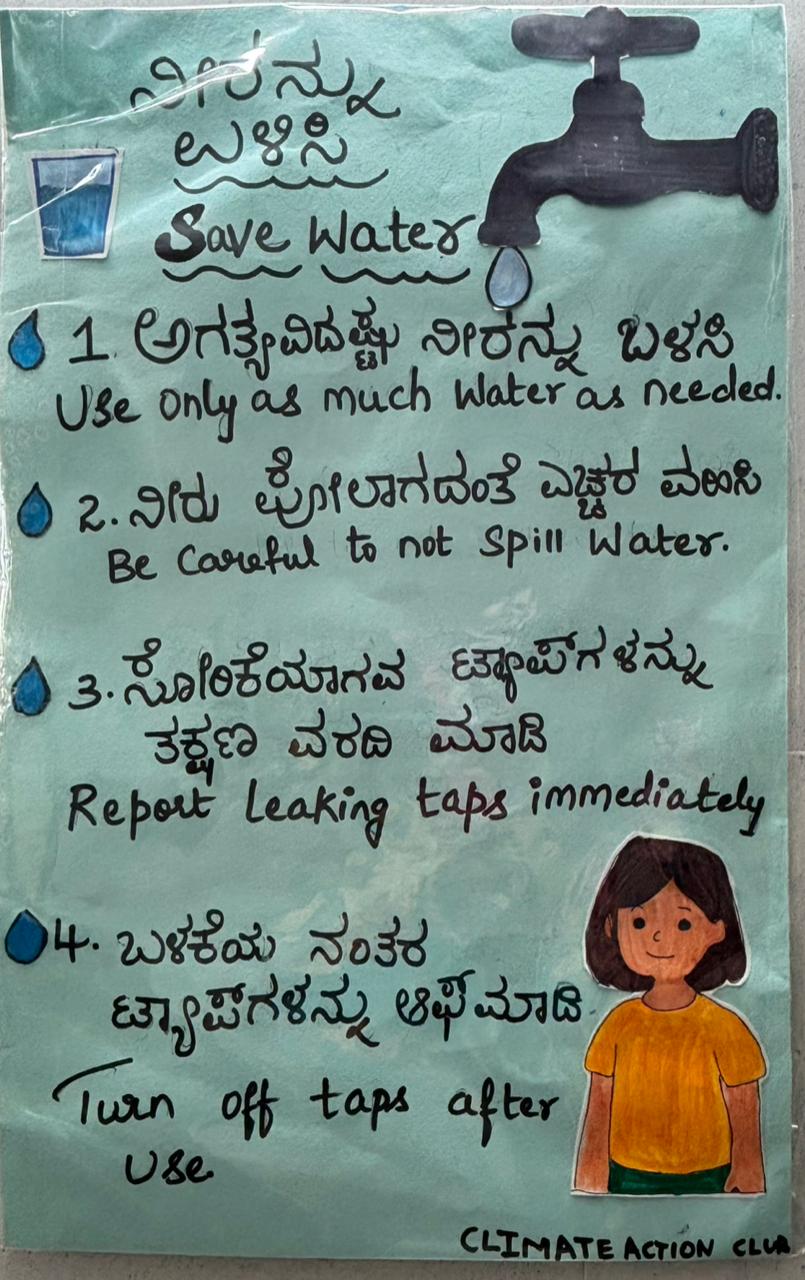 ನೀರನ್ನು
ಉಳಿಸಿ
Save Water
1. ಅಗತ್ಯವಿದಷ್ಟು ನೀರನ್ನು ಬಳಸಿ
Use only as much Water as needed.
2. ನೀರು ಪೋಲಾಗದಂತೆ ಎಚ್ಚರ ವಹಿಸಿ
Be Careful to not Spill Water.
3. ಸೋರಿಕೆಯಾಗವ ಟ್ಯಾಪ್‌ಗಳನ್ನು
ತಕ್ಷಣ ವರದಿ ಮಾಡಿ
Report leaking taps immediately
4. ಬಳಕೆಯ ನಂತರ
ಟ್ಯಾಪ್‌ಗಳನ್ನು ಆಫ್ ಮಾಡಿ
Turn off taps after
Use
CLIMATE ACTION CLUB